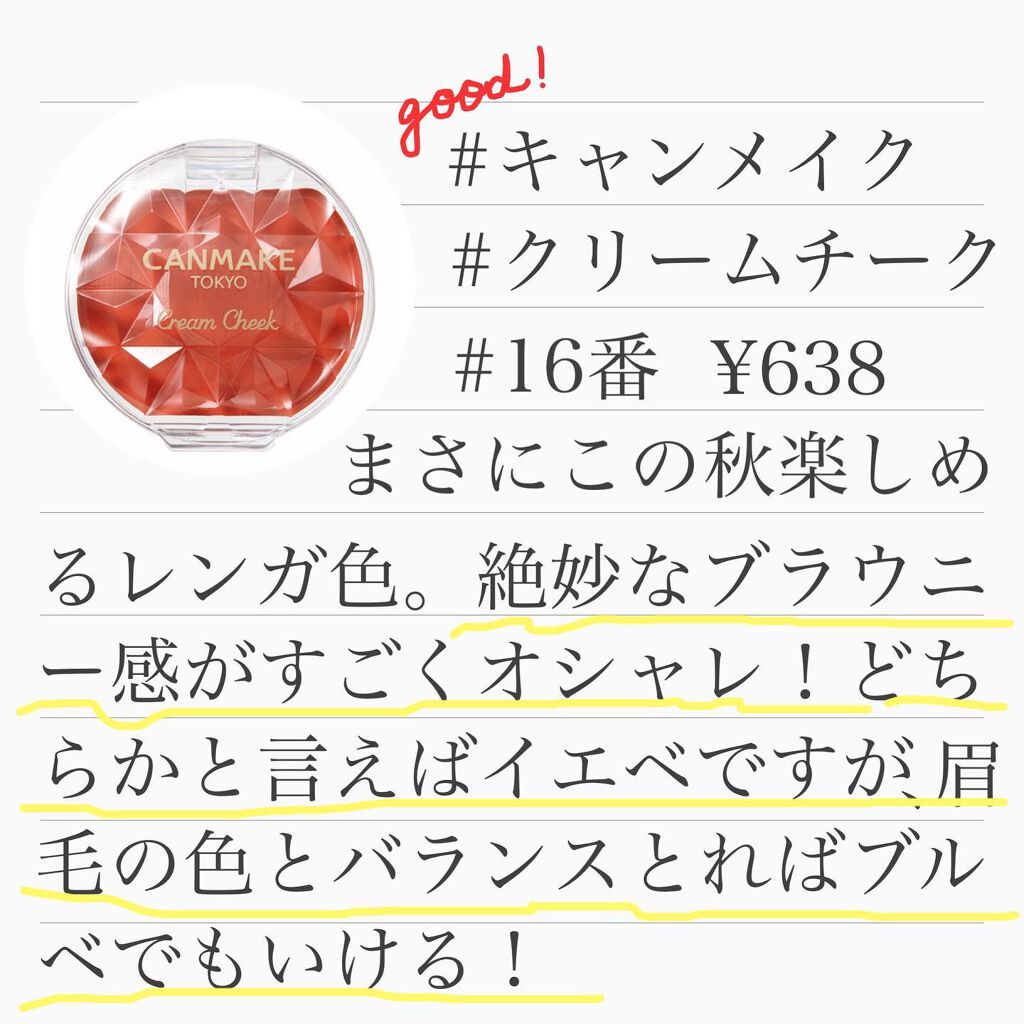 good!
#キャンメイク
CANMAKE
TOKYO
Cream Cheek
#クリームチーク
#16番 ¥638
まさにこの秋楽しめ
るレンガ色。絶妙なブラウニ
ー感がすごくオシャレ！どち
らかと言えばイエベですが、眉
毛の色とバランスとればブル
べでもいける！